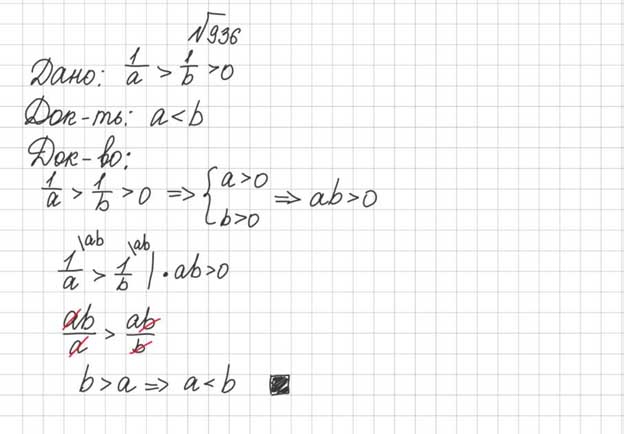 √936
Дано: 1/a > 1/b > 0
Док-ть: a < b
Док-во:
1/a > 1/b > 0 => { a > 0, b > 0 => ab > 0
1/a \ab > 1/b \ab | · ab > 0
ab/a > ab/b
b > a => a < b